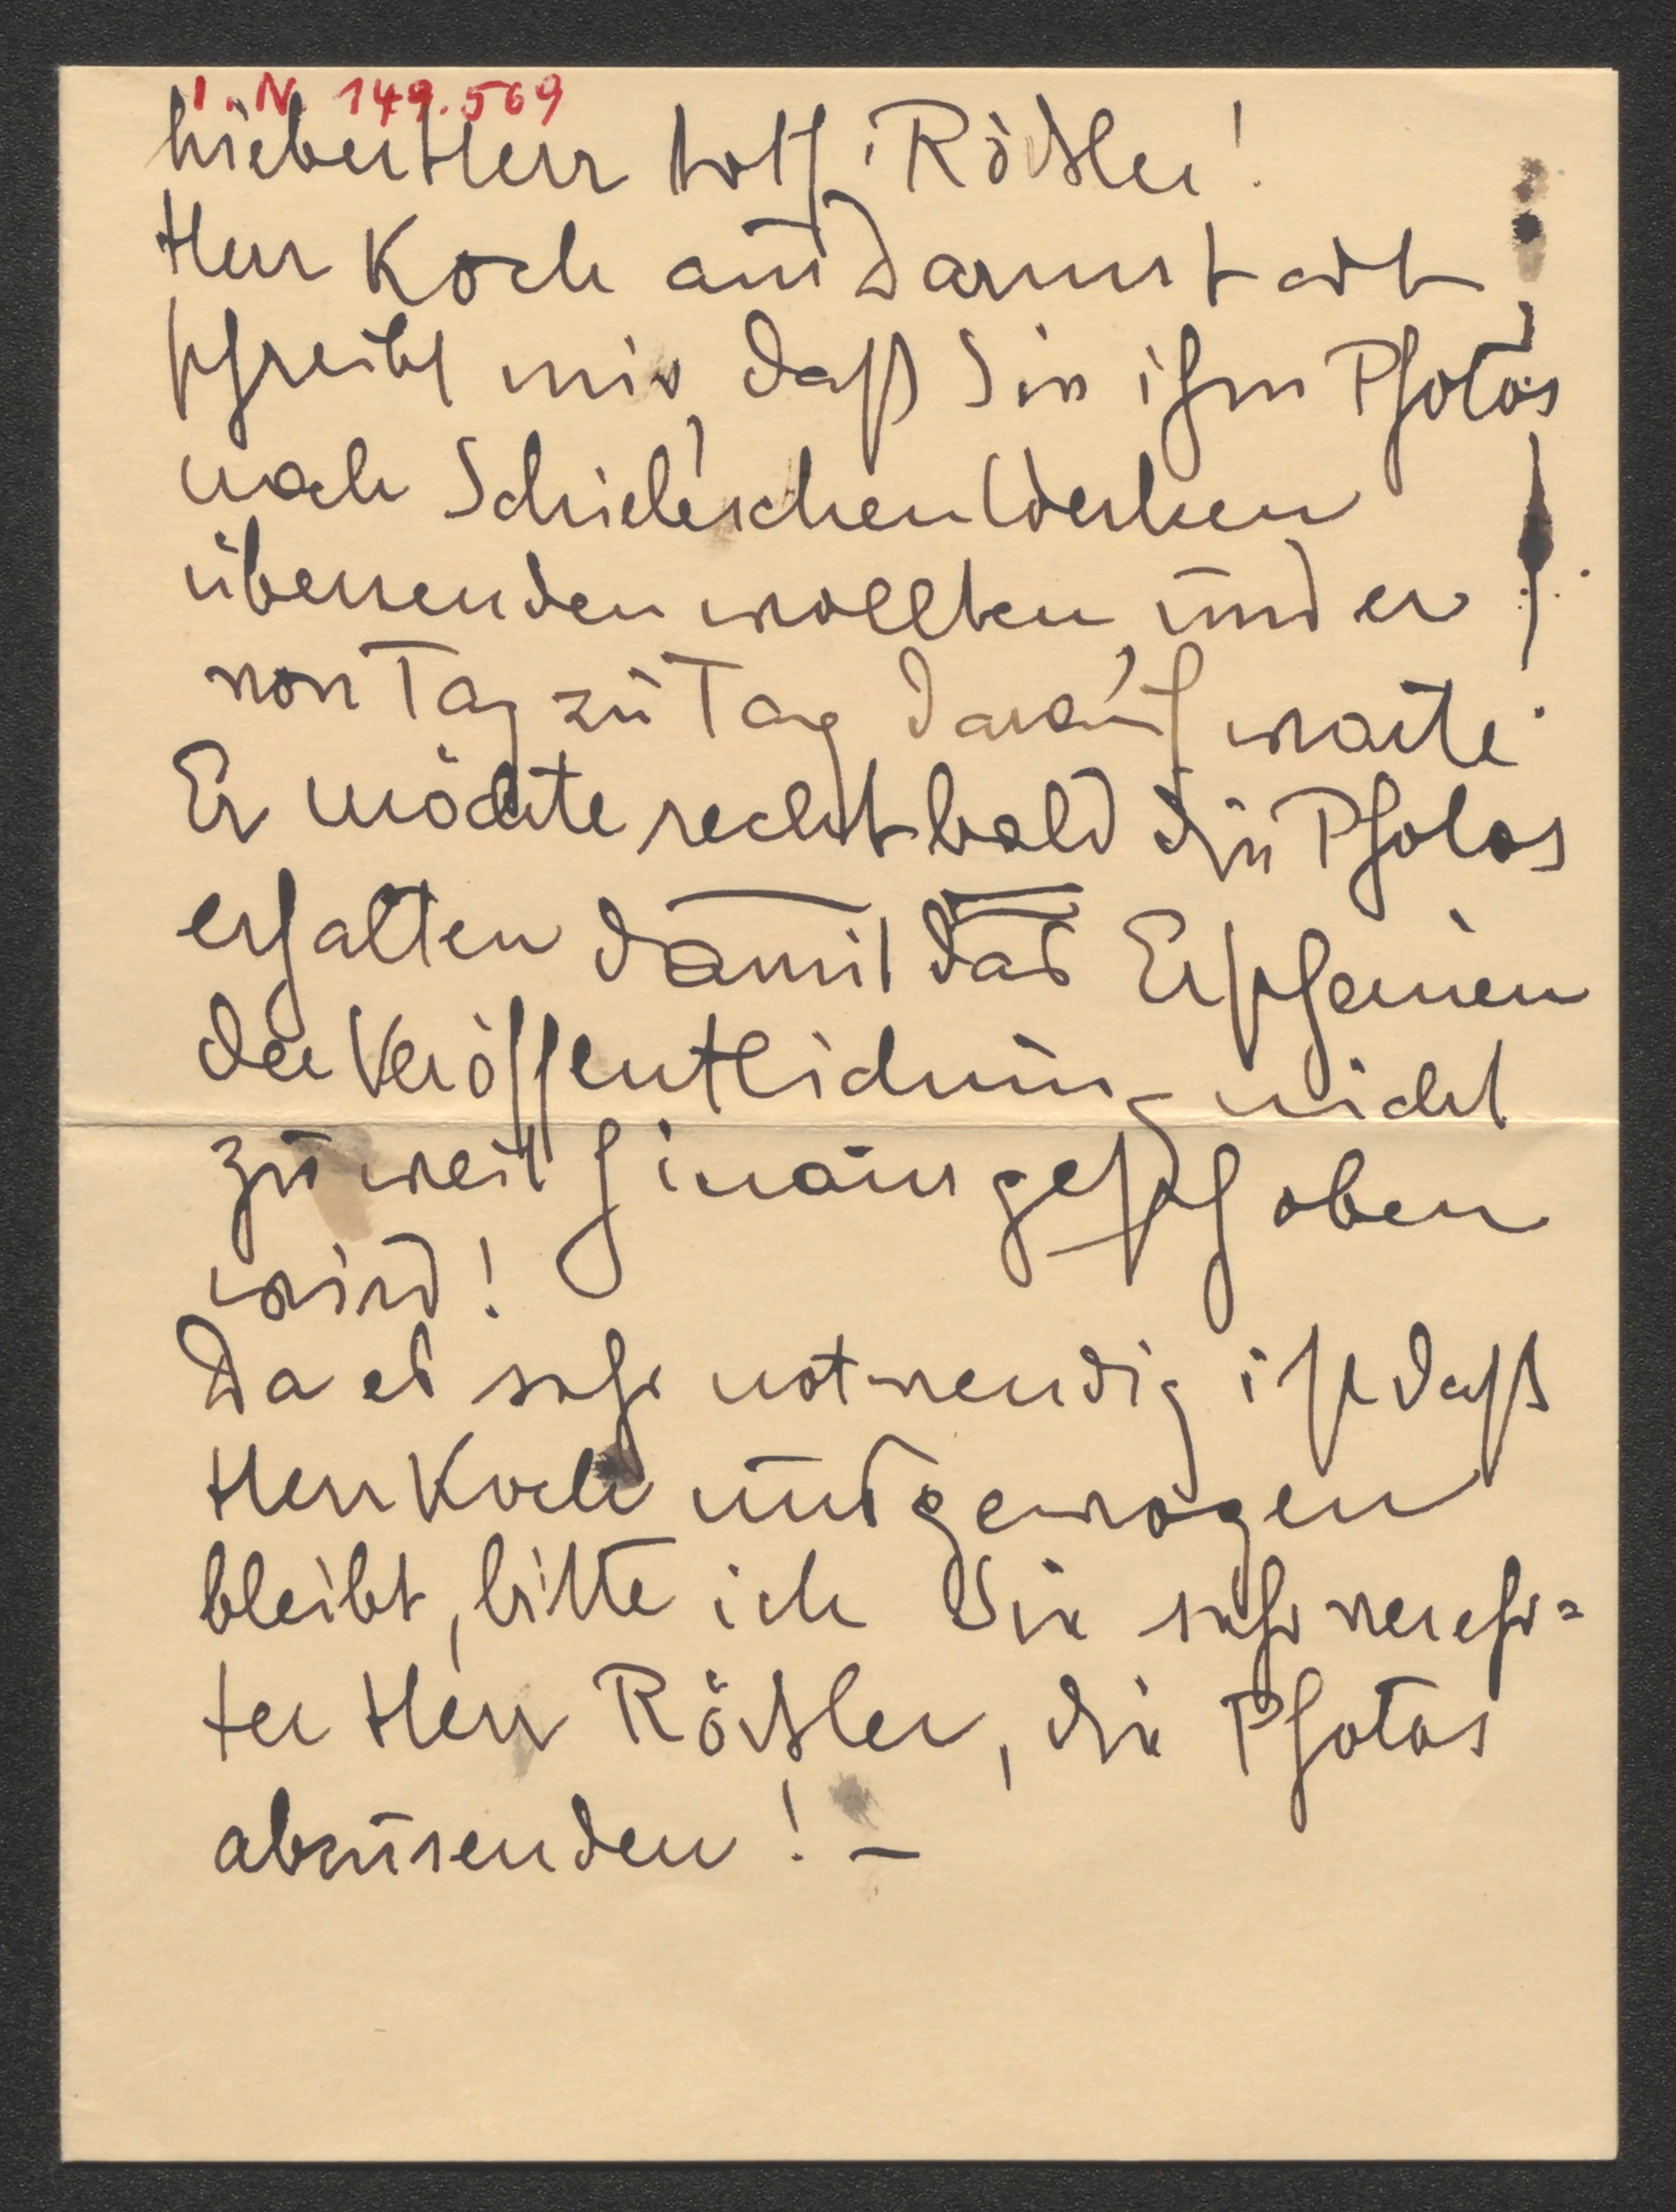 I. N. 149.569
Lieber Herr Roessler!
Herr Koch aus Darmstadt
schreibt mir, daß Sie ihm Photos
nach Schiele'schen Werken
übersenden wollten und er
von Tag zu Tag darauf warte.
Er möchte recht bald die Photos
erhalten damit das Erscheinen
der Veröffentlichung nicht
zu weit hinausgeschoben
wird!
Da es sehr notwendig ist daß
Herr Koch uns gewogen
bleibt, bitte ich Sie sehr verehr=
ter Herr Rößler, die Photos
abzusenden! –